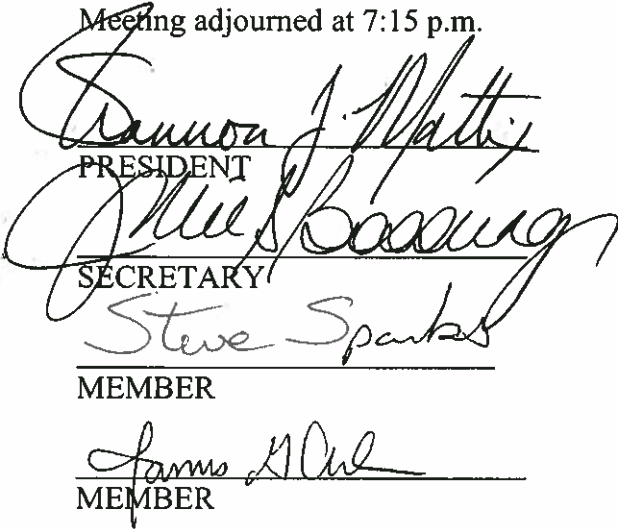 Meeting adjourned at 7:15 p.m.
Shannon J. Mattix
PRESIDENT
SECRETARY
Steve Sparks
MEMBER
MEMBER